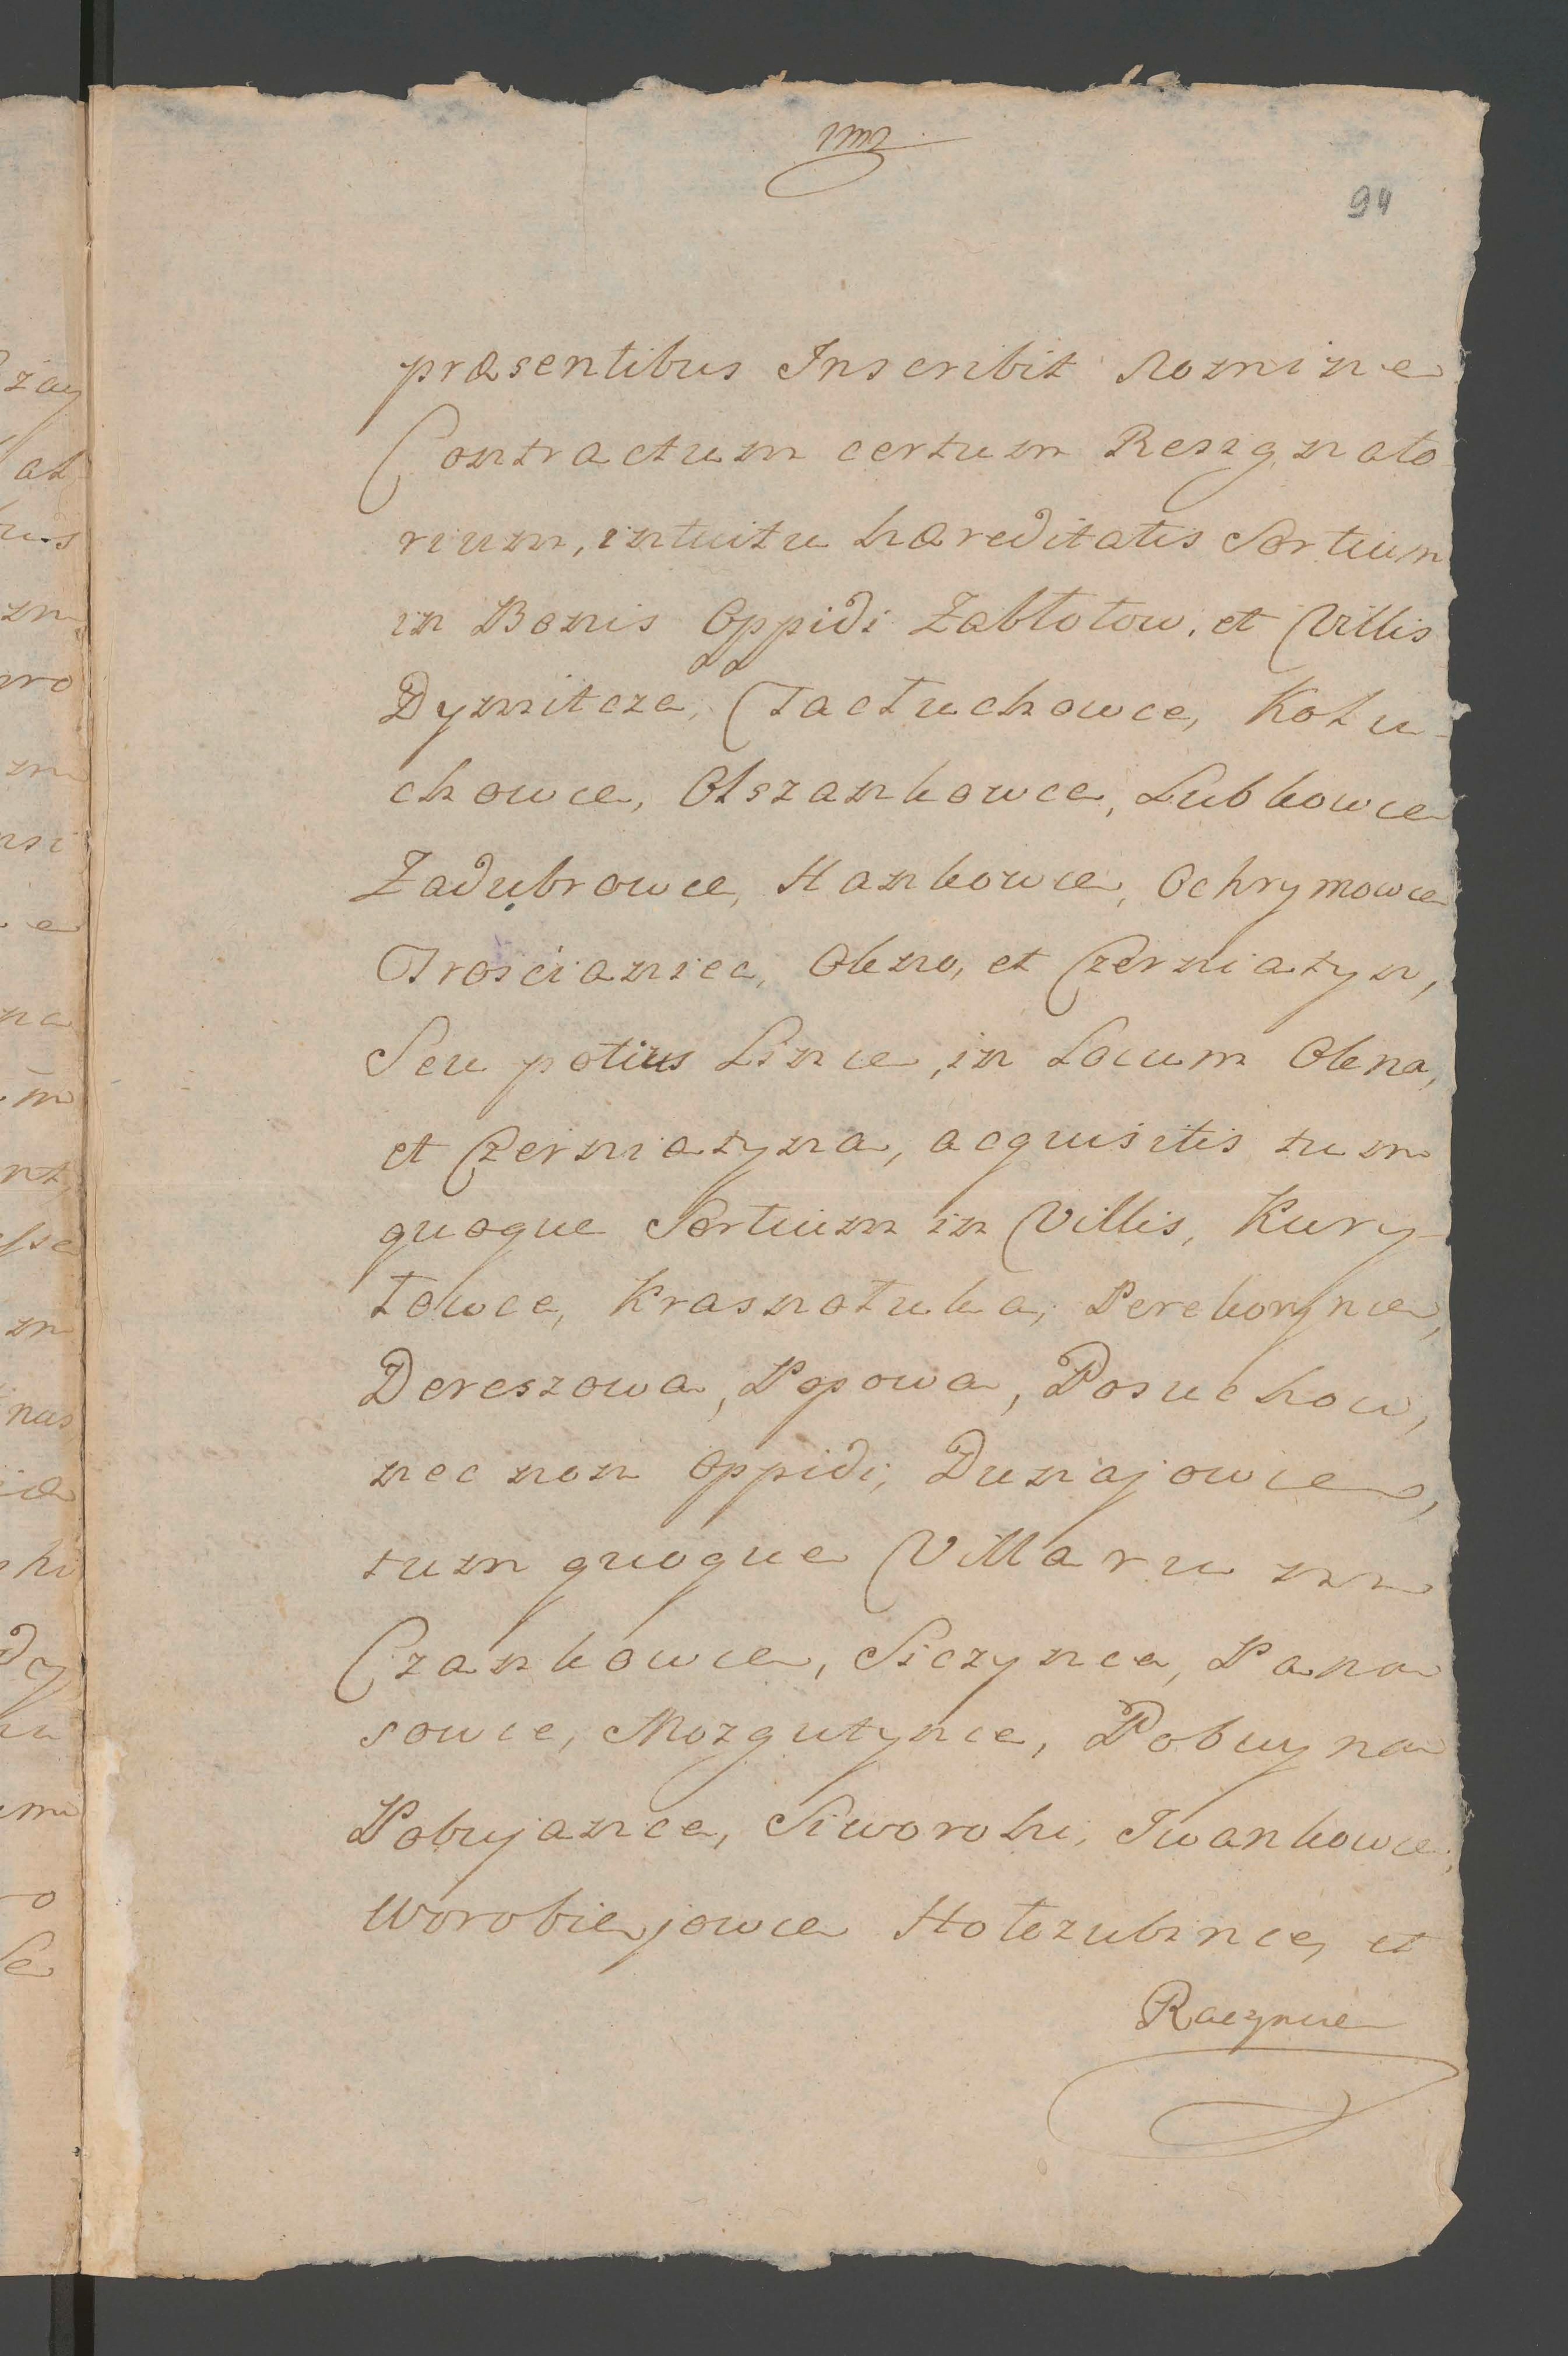 94
præsentibus Inscribit nomine
Contractum certum Resignato
rium, intuitu hæreditatis Sortium
in Bonis Oppidi Zabłotow, et Villis
Dymitcze, Tactuchowce, Kołu-
chowce, Olszankowce, Lubkowce
Zadubrowce, Hankowce, Ochrymowce
Trościaniec, Okno, et Czerniatyn,
Seu potius Lince, in Locum Okna,
et Czerniatyna, acquisitis tum
quoque Sortium in Villis, Kury-
towce, Krasnotuka, Perekorynce,
Dereszowa, Popowa, Posuchow,
nec non Oppidi, Dunajowce,
tum quoque Villarum
Czankowce, Siczynce, Pana
sowce, Mozgutynce, Pobuyna
Pobujance, Siworohi, Iwankowce,
Worobiejowce Hołozubince, et
Raczynce